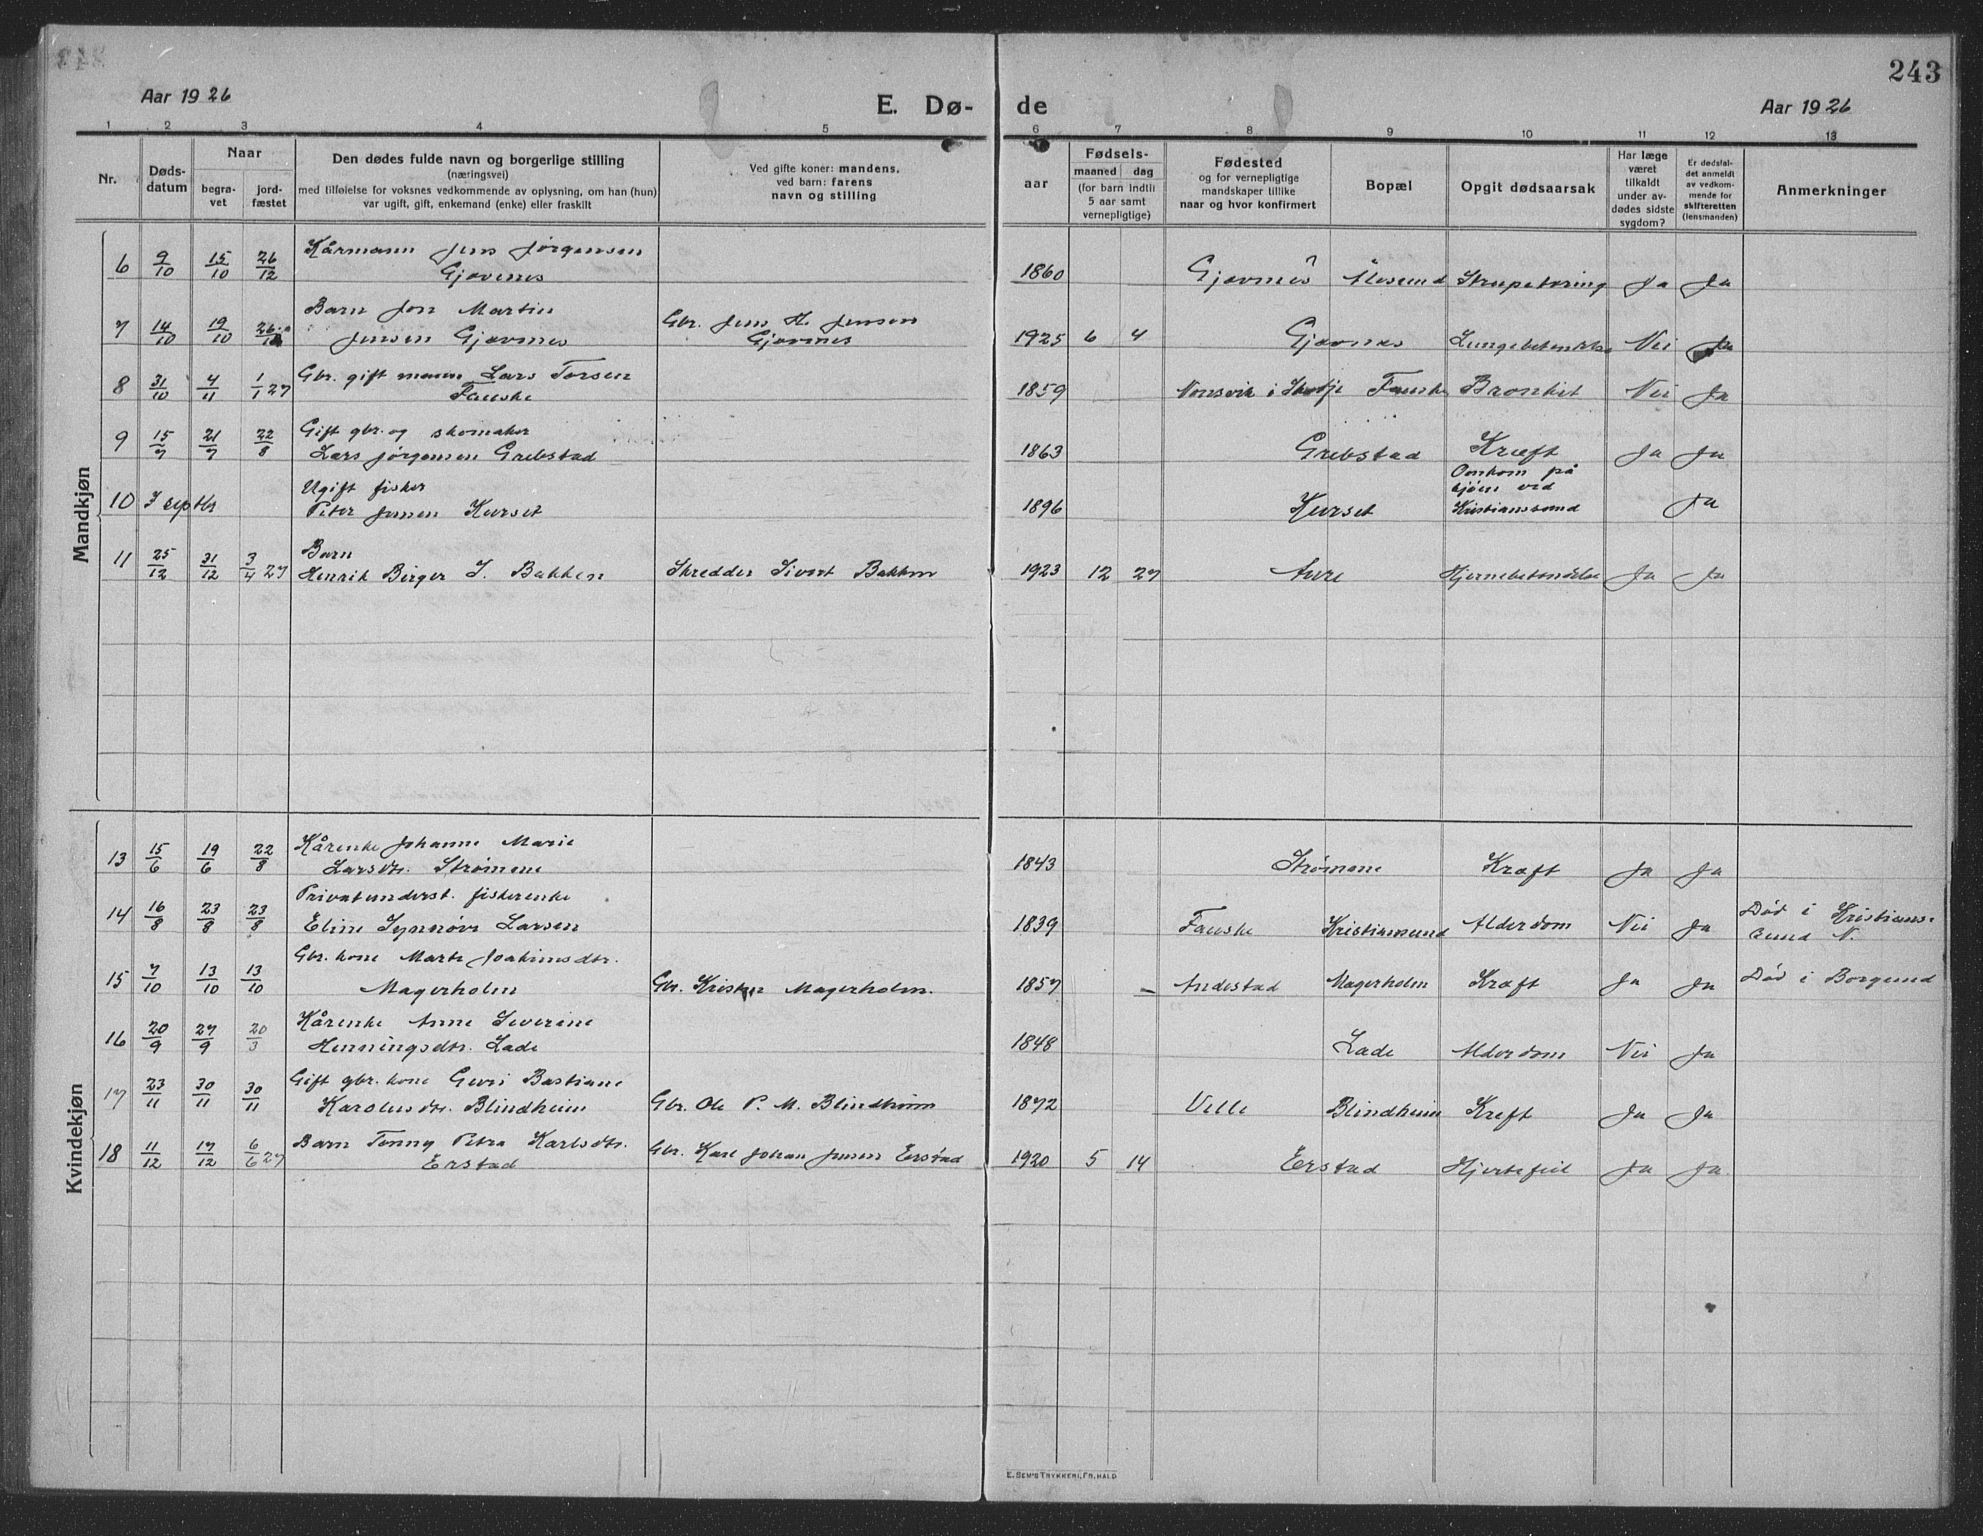 243
Aar 1926
E. Dø-
de
Aar 1926
1 2 3 4 5 6 7 8 9 10 11 12 13
Nr.
Døds-
datum
Naar
begra-
vet
jord-
fæstet
Den dødes fulde navn og borgerlige stilling
(næringsvei)
med tilføielse for voksnes vedkommende av oplysning, om han (hun)
var ugift, gift, enkemand (enke) eller fraskilt
Ved gifte koner: mandens,
ved barn: farens
navn og stilling
aar
Fødsels-
maaned dag
(for barn indtil
5 aar samt
vernepligtige)
Fødested
og for vernepligtige
mandskaper tillike
naar og hvor konfirmert
Bopæl
Opgit dødsaarsak
Har læge
været
tilkaldt
under av-
dødes sidste
sygdom?
Er dødsfal-
det anmeldt
av vedkom-
mende for
skifteretten
(lensmanden)
Anmerkninger
Mandkjøn
6 9/10 15/10 26/12 Kårmann Jens Jørgensen
Gjævenes 1860 Gjævnes Ålesund Strupetæring Ja Ja
7 14/10 19/10 26/12 Barn Jon Martin
Jensen Gjævnes Gbr. Jens K. Jensen
Gjævnes 1925 6 4 Gjævnes Lungebetendelse Nei Ja
8 31/10 4/11 1/1 27 Gbr. gift mann Lars Torsen
Fauske 1859 Nonsvik i Skodje Fauske Bronkit Nei Ja
9 15/7 21/7 22/8 Gift gbr. og skomaker
Lars Jørgensen Grebstad 1863 Grebstad Kræft Ja Ja
10 I septbr Ugift fisker
Peter Jensen Kurset 1896 Kurset Omkom på
sjøen ved
Kristianssund Ja
11 25/12 31/12 3/4 27 Barn
Henrik Birger S. Bakken Skredder Sivert Bakken 1923 12 27 Aure Hjernebetendelse Ja Ja
Kvindekjøn
13 15/6 19/6 22/8 Kårenke Johanne Marie
Larsdtr. Strømene 1843 Strømene Kræft Ja Ja
14 16/8 23/8 23/8 Privatunderst. fiskerenke
Eline Synnøve Larsen 1839 Fauske Kristiansund Alderdom Nei Ja Død i Kristians-
sund N.
15 7/10 13/10 13/10 Gbr. kone Marte Joakimsdtr.
Magerholm Gbr. Kristen Magerholm. 1857 Andestad Magerholm Kræft Ja Ja Død i Borgund
16 20/9 27/9 20/3 Kårenke Anne Severine
Henningsdtr. Lade 1848 Lade Alderdom Nei Ja
17 23/11 30/11 30/11 Gift gbr. kone Guri Bastiane
Karolusdtr. Blindheim Gbr. Ole P. M. Blindheim 1872 Velle Blindheim Kreft Ja Ja
18 11/12 17/12 6/6 27 Barn Tenny Petra Karlsdtr.
Erstad Gbr. Karl Johan Jensen Erstad 1920 5 14 Erstad Hjertefeil Ja Ja
E. SEM'S TRYKKERI, FR.HALD